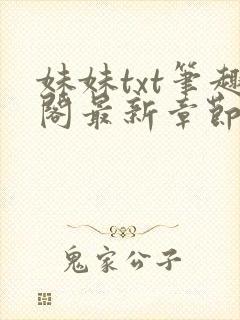 妹妹txt笔趣
阁最新章節
鬼家公子